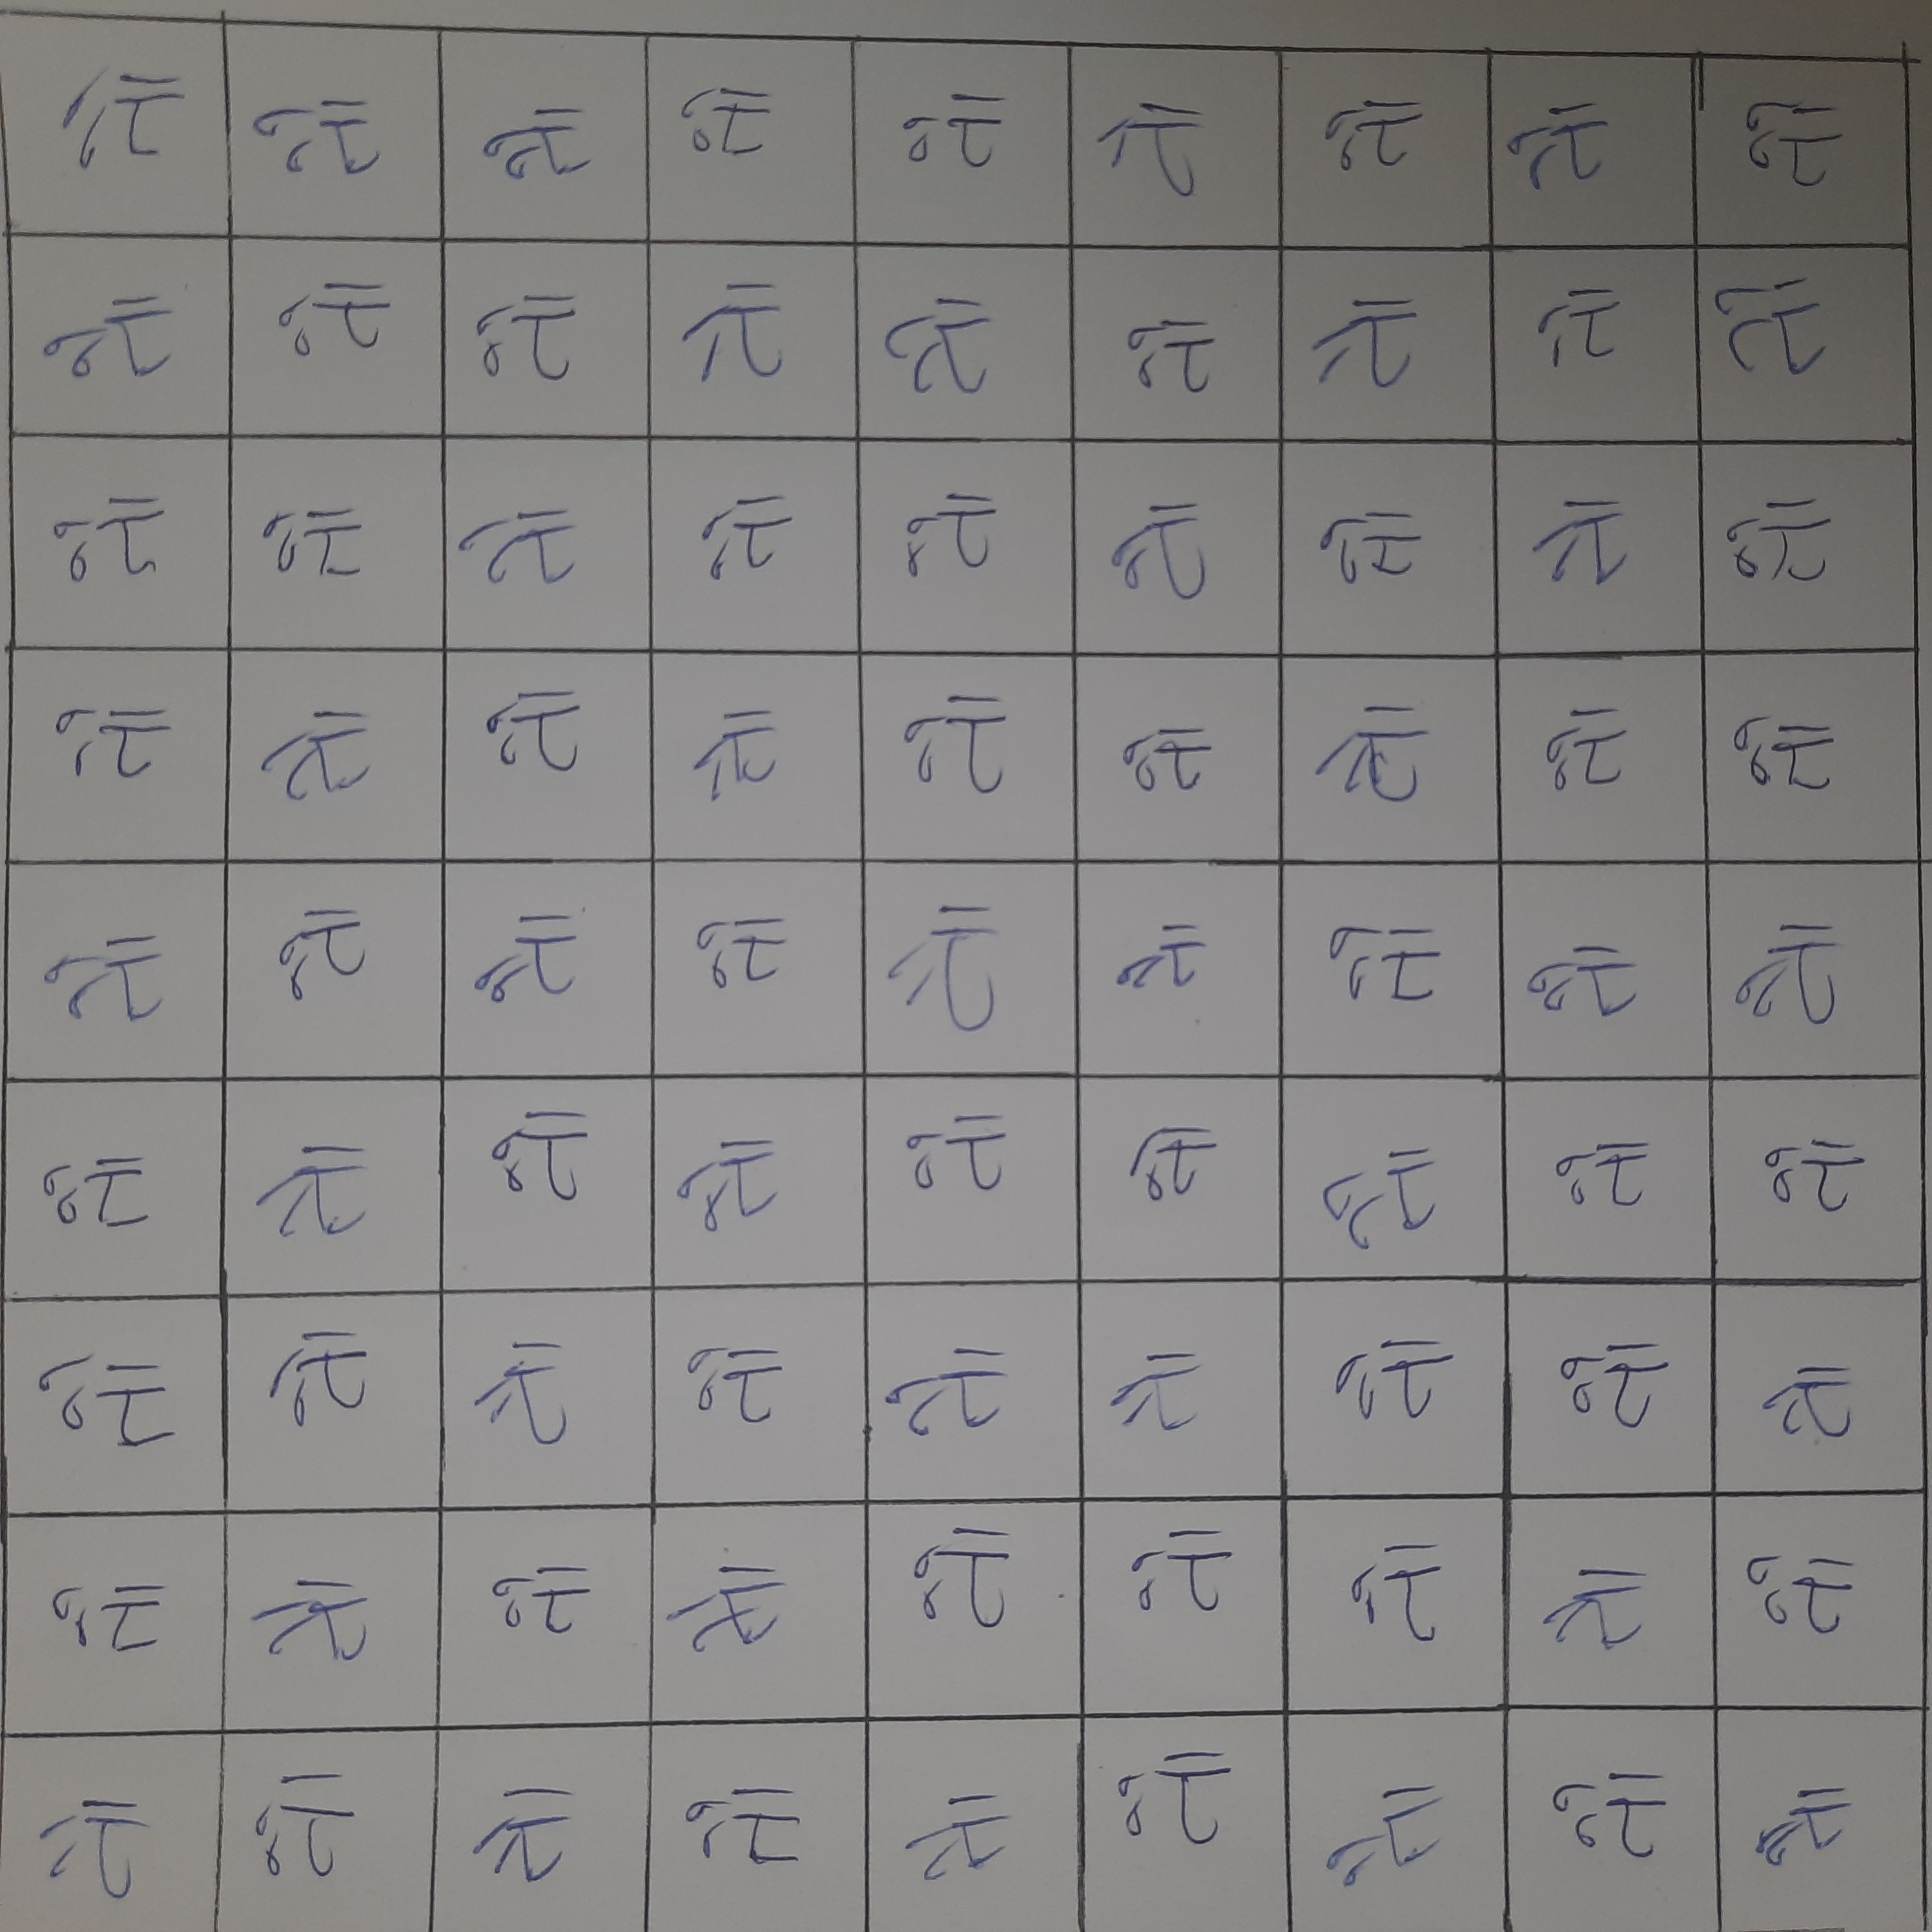 तौ तौ तौ तौ तौ तौ तौ तौ तौ
तौ तौ तौ तौ तौ तौ तौ तौ तौ
तौ तौ तौ तौ तौ तौ तौ तौ तौ
तौ तौ तौ तौ तौ तौ तौ तौ तौ
तौ तौ तौ तौ तौ तौ तौ तौ तौ
तौ तौ तौ तौ तौ तौ तौ तौ तौ
तौ तौ तौ तौ तौ तौ तौ तौ तौ
तौ तौ तौ तौ तौ तौ तौ तौ तौ
तौ तौ तौ तौ तौ तौ तौ तौ तौ